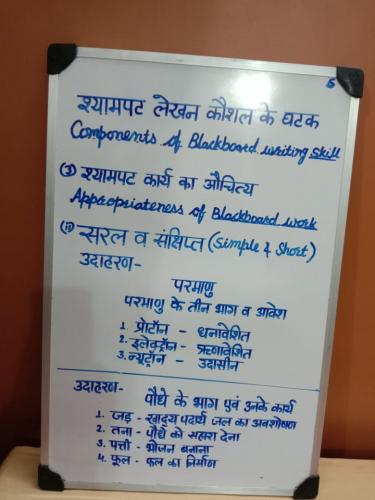 5
श्यामपट लेखन कौशल के घटक
Components of Blackboard writing skill
(3) श्यामपट कार्य का औचित्य
Appropriateness of Blackboard work
(ii) सरल व संक्षिप्त (Simple & Short)
उदाहरण-
परमाणु
परमाणु के तीन भाग व आवेश
1. प्रोटॉन - धनावेशित
2. इलेक्ट्रॉन - ऋणावेशित
3. न्यूट्रॉन - उदासीन
उदाहरण- पौधे के भाग एवं उनके कार्य
1. जड़ - खाद्य पदार्थ जल का अवशोषण
2. तना - पौधे को सहारा देना
3. पत्ती - भोजन बनाना
4. फूल - फल का निर्माण